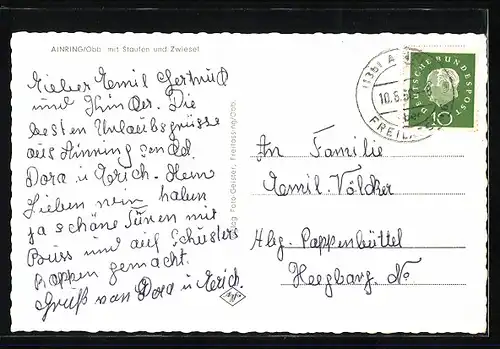 AINRING/Obb. mit Staufen und Zwiesel
Lieber Emil Gertrud
und Kinder. Die
besten Urlaubsgrüsse
aus Ainring sendet
Dora u. Erich.
haben
ja schöne Turen mit
und auf Schusters
Rappen gemacht.
Gruß von Dora u Erich.
Foto-Geissler, Freilassing/Obb.
(13b) A
10.8.
FREILA
DEUTSCHE BUNDESPOST
10
An Familie
Emil Völcker
Hbg. Poppenbüttel
Heegbarg. No